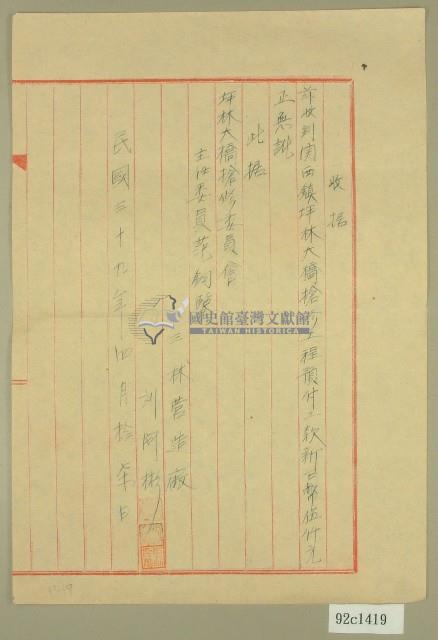 收据
茲收到関西鎮坪林大橋搶修工程預付工款新台幣伍仟元
正無訛
此据
坪林大橋搶修委員會
主任委員范朝
三林營造廠
刘阿彬
民國三十九年四月拾柒日
國史館臺灣文獻館
TAIWAN HISTORICA
92c1419